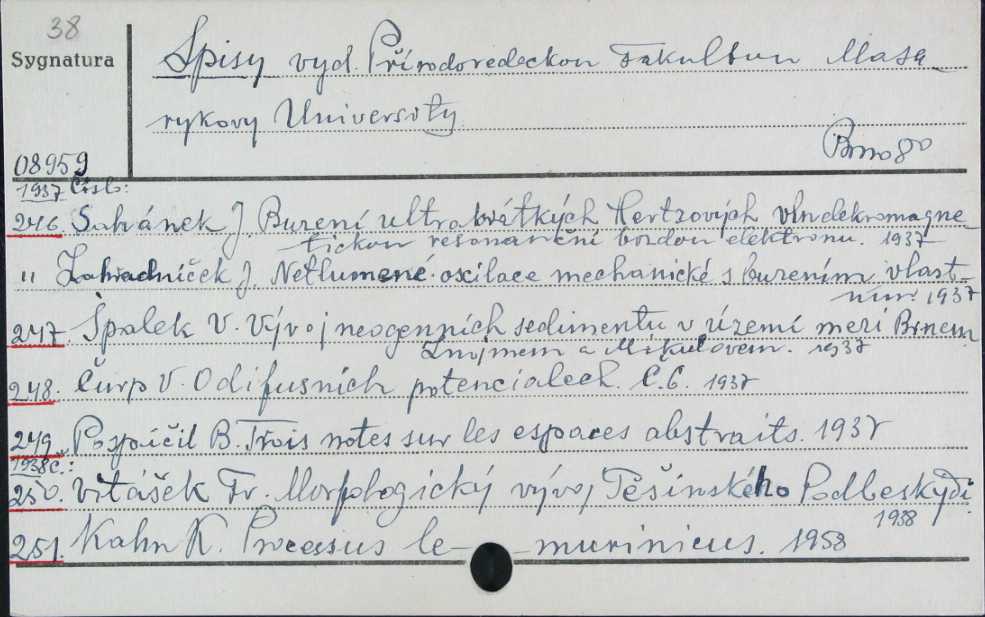 38
Sygnatura
Spisy vyd. Přírodovedeckon Fakultun Masa-
rykovy University
Brno 80
08959
1937 Číslo:
246. Sahánek J Buzení ultrakrátkých Hertzových vln elekromagne-
tickou resonanční bozdou elektronu. 1937
" Zahradníček J. Netlumené oscilace mechanické s buzením vlast-
ním 1937
247 Špalek V. Vývoj neogenních sedimentu v území mezi Brnem
Znojmem a Mikulovem. 1937
248. Čurp V. O difusních potencialech. C.6. 1937
249 Pospíčil B. Trois notes sur les espaces abstraits. 1937
1938 č.:
250. Vitášek Fr. Morfologický vývoj Těšínského Podbeskydí
1938
251. Kahn K. Processus le- -murinicus. 1958